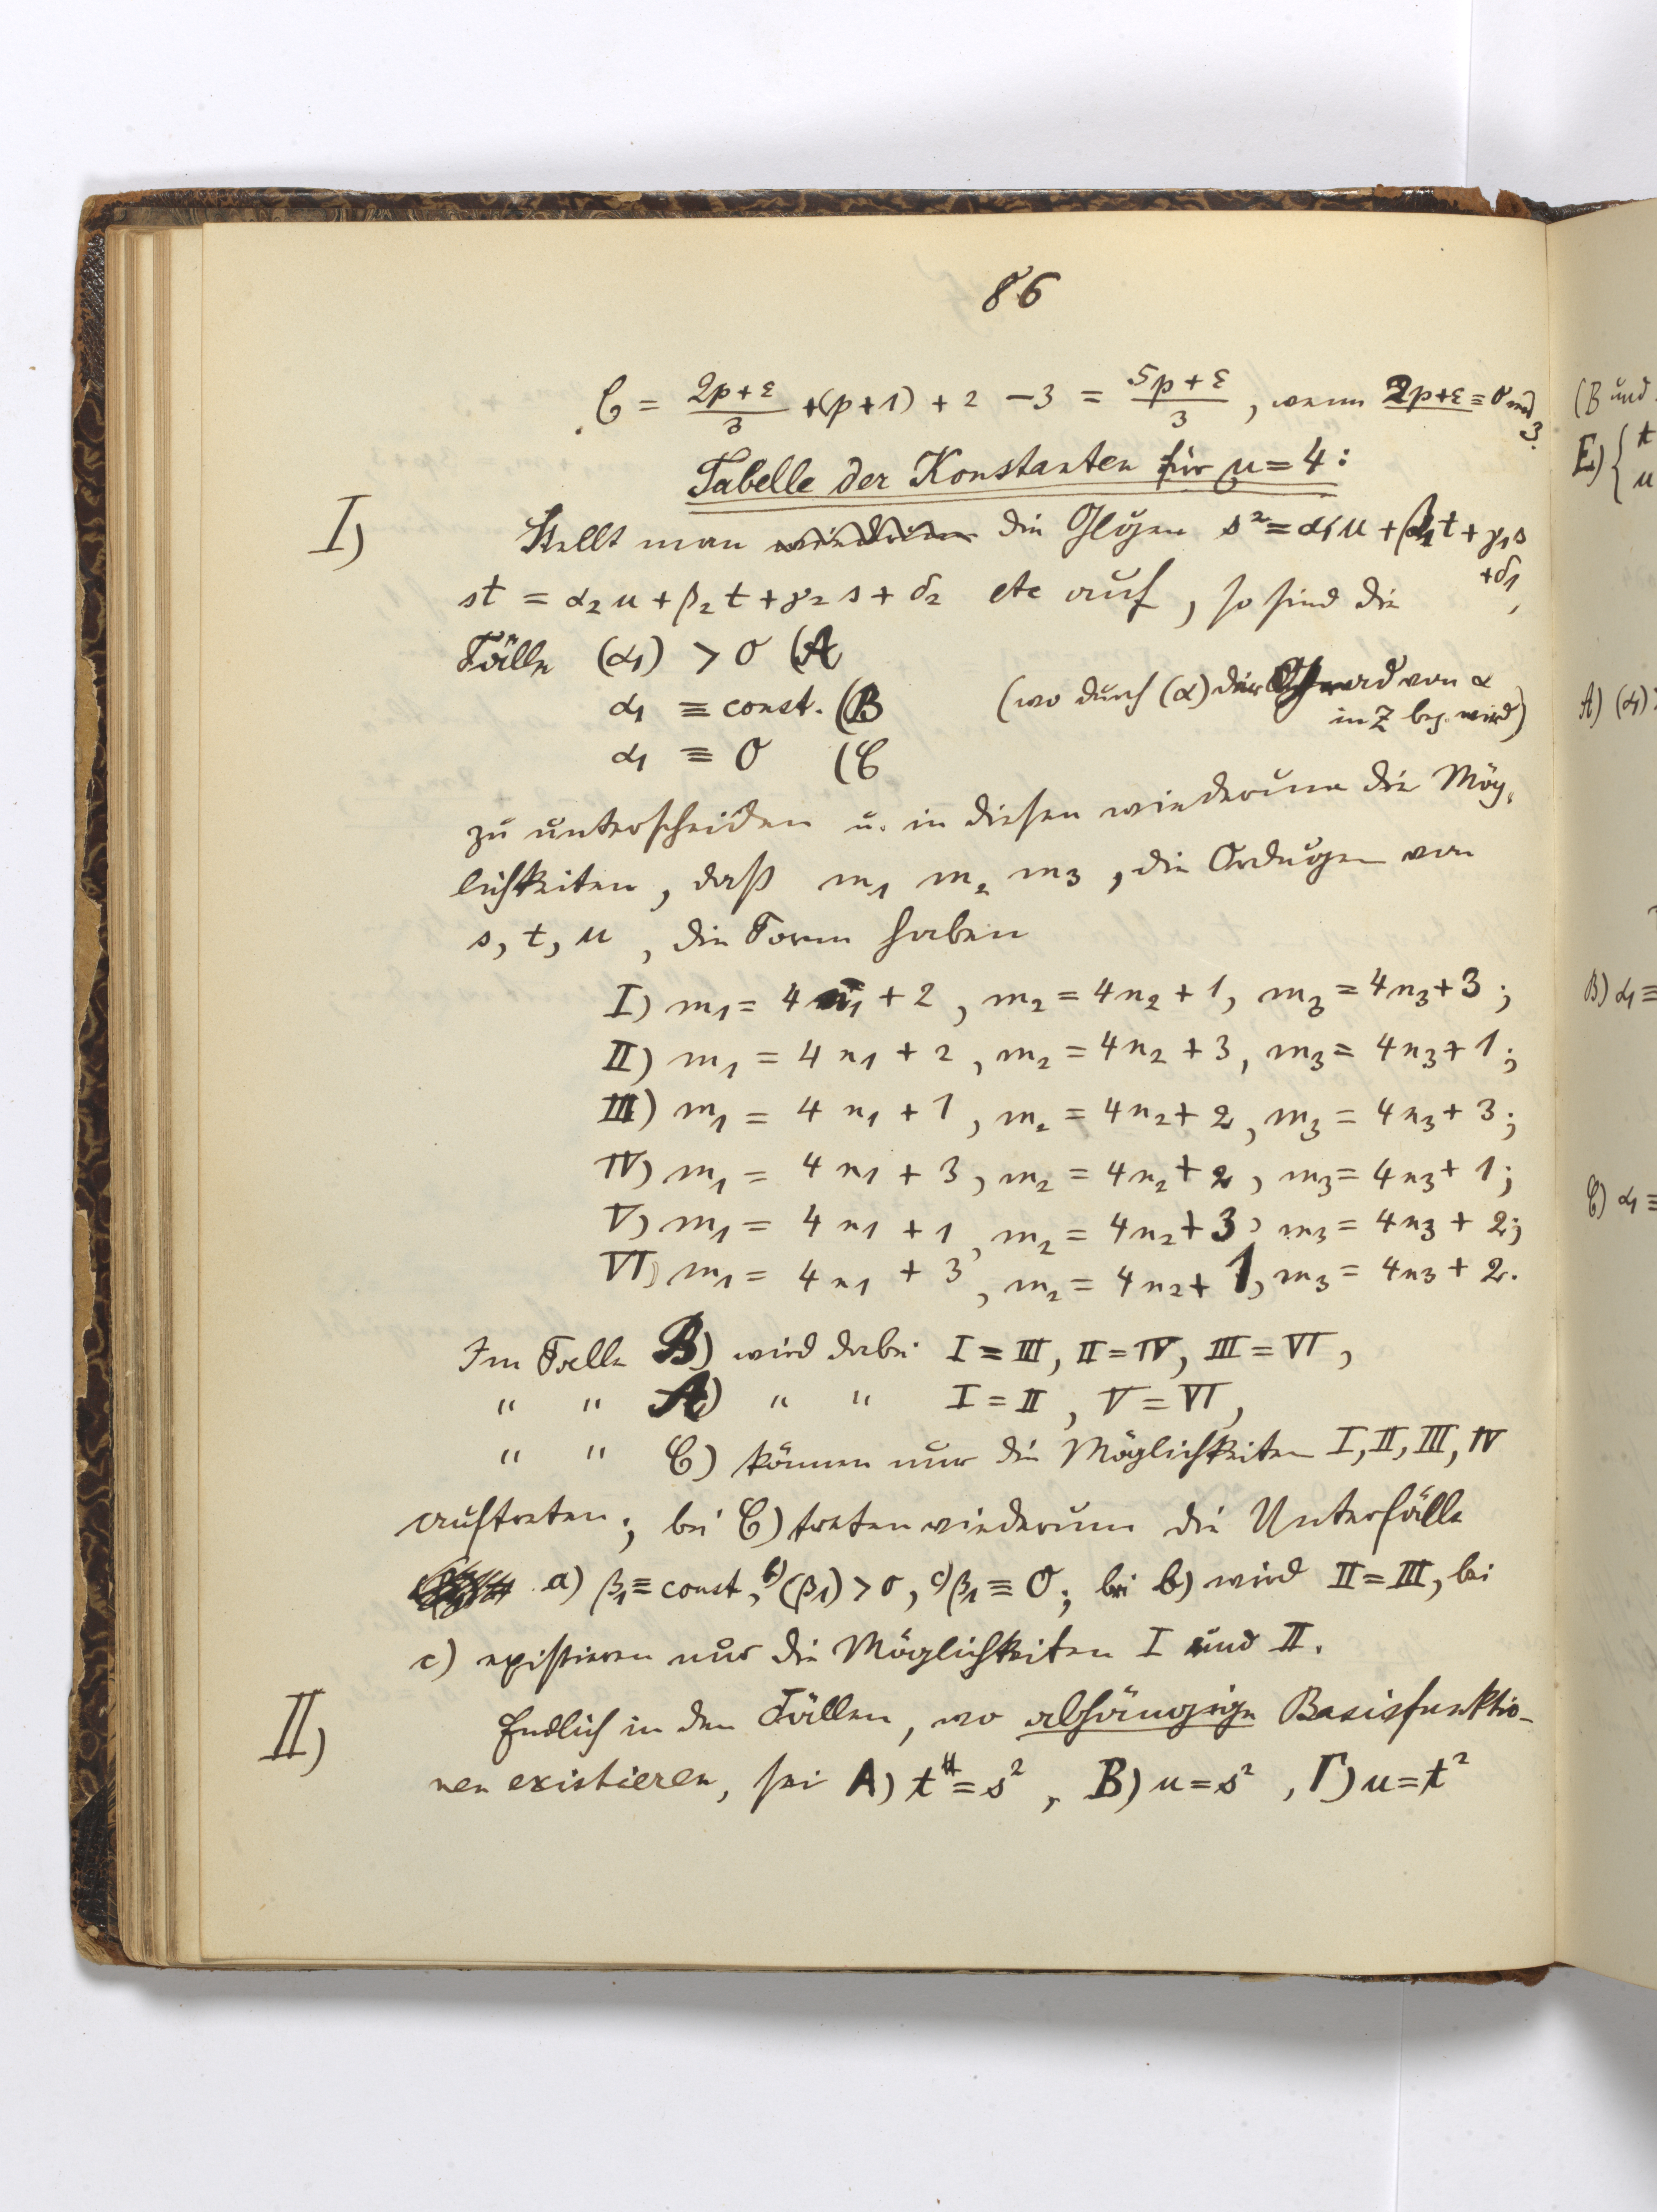 86
C = (2p+ε)/3 + (p+1) + 2 − 3 = (5p+ε)/3, wenn 2p+ε ≡ 0 mod 3.
Tabelle der Konstanten für μ=4:
I) Stellt man wiederum die Glgen s² = α₁u + β₁t + γ₁s + δ₁,
st = α₂u + β₂t + γ₂s + δ₂ etc auf, so sind die
Fälle (α₁) > 0 (A
α₁ ≡ const. (B
(wo durch (α) der Grad von α
in z bez. wird)
α₁ ≡ 0 (C
zu unterscheiden u. in diesen wiederum die Mög-
lichkeiten, daß m₁ m₂ m₃, die Ordngen von
s, t, u, die Form haben
I) m₁ = 4n₁ + 2, m₂ = 4n₂ + 1, m₃ = 4n₃ + 3;
II) m₁ = 4n₁ + 2, m₂ = 4n₂ + 3, m₃ = 4n₃ + 1;
III) m₁ = 4n₁ + 1, m₂ = 4n₂ + 2, m₃ = 4n₃ + 3;
IV) m₁ = 4n₁ + 3, m₂ = 4n₂ + 2, m₃ = 4n₃ + 1;
V) m₁ = 4n₁ + 1, m₂ = 4n₂ + 3, m₃ = 4n₃ + 2;
VI) m₁ = 4n₁ + 3, m₂ = 4n₂ + 1, m₃ = 4n₃ + 2.
Im Falle B) wird dabei I = III, II = IV, III = VI,
" " A) " " I = II, V = VI,
" " C) können nur die Möglichkeiten I, II, III, IV
auftreten; bei C) treten wiederum die Unterfälle
a) β₁ ≡ const, b) (β₁) > 0, c) β₁ ≡ 0; bei b) wird II = III, bei
c) existieren nur die Möglichkeiten I und II.
II) Endlich in den Fällen, wo abhängige Basisfunktio-
nen existieren, sei A) t = s², B) u = s², Γ) u = t²
(B und
E) { t
u
A) (α₁)
B) α₁ ≡
C) α₁ ≡